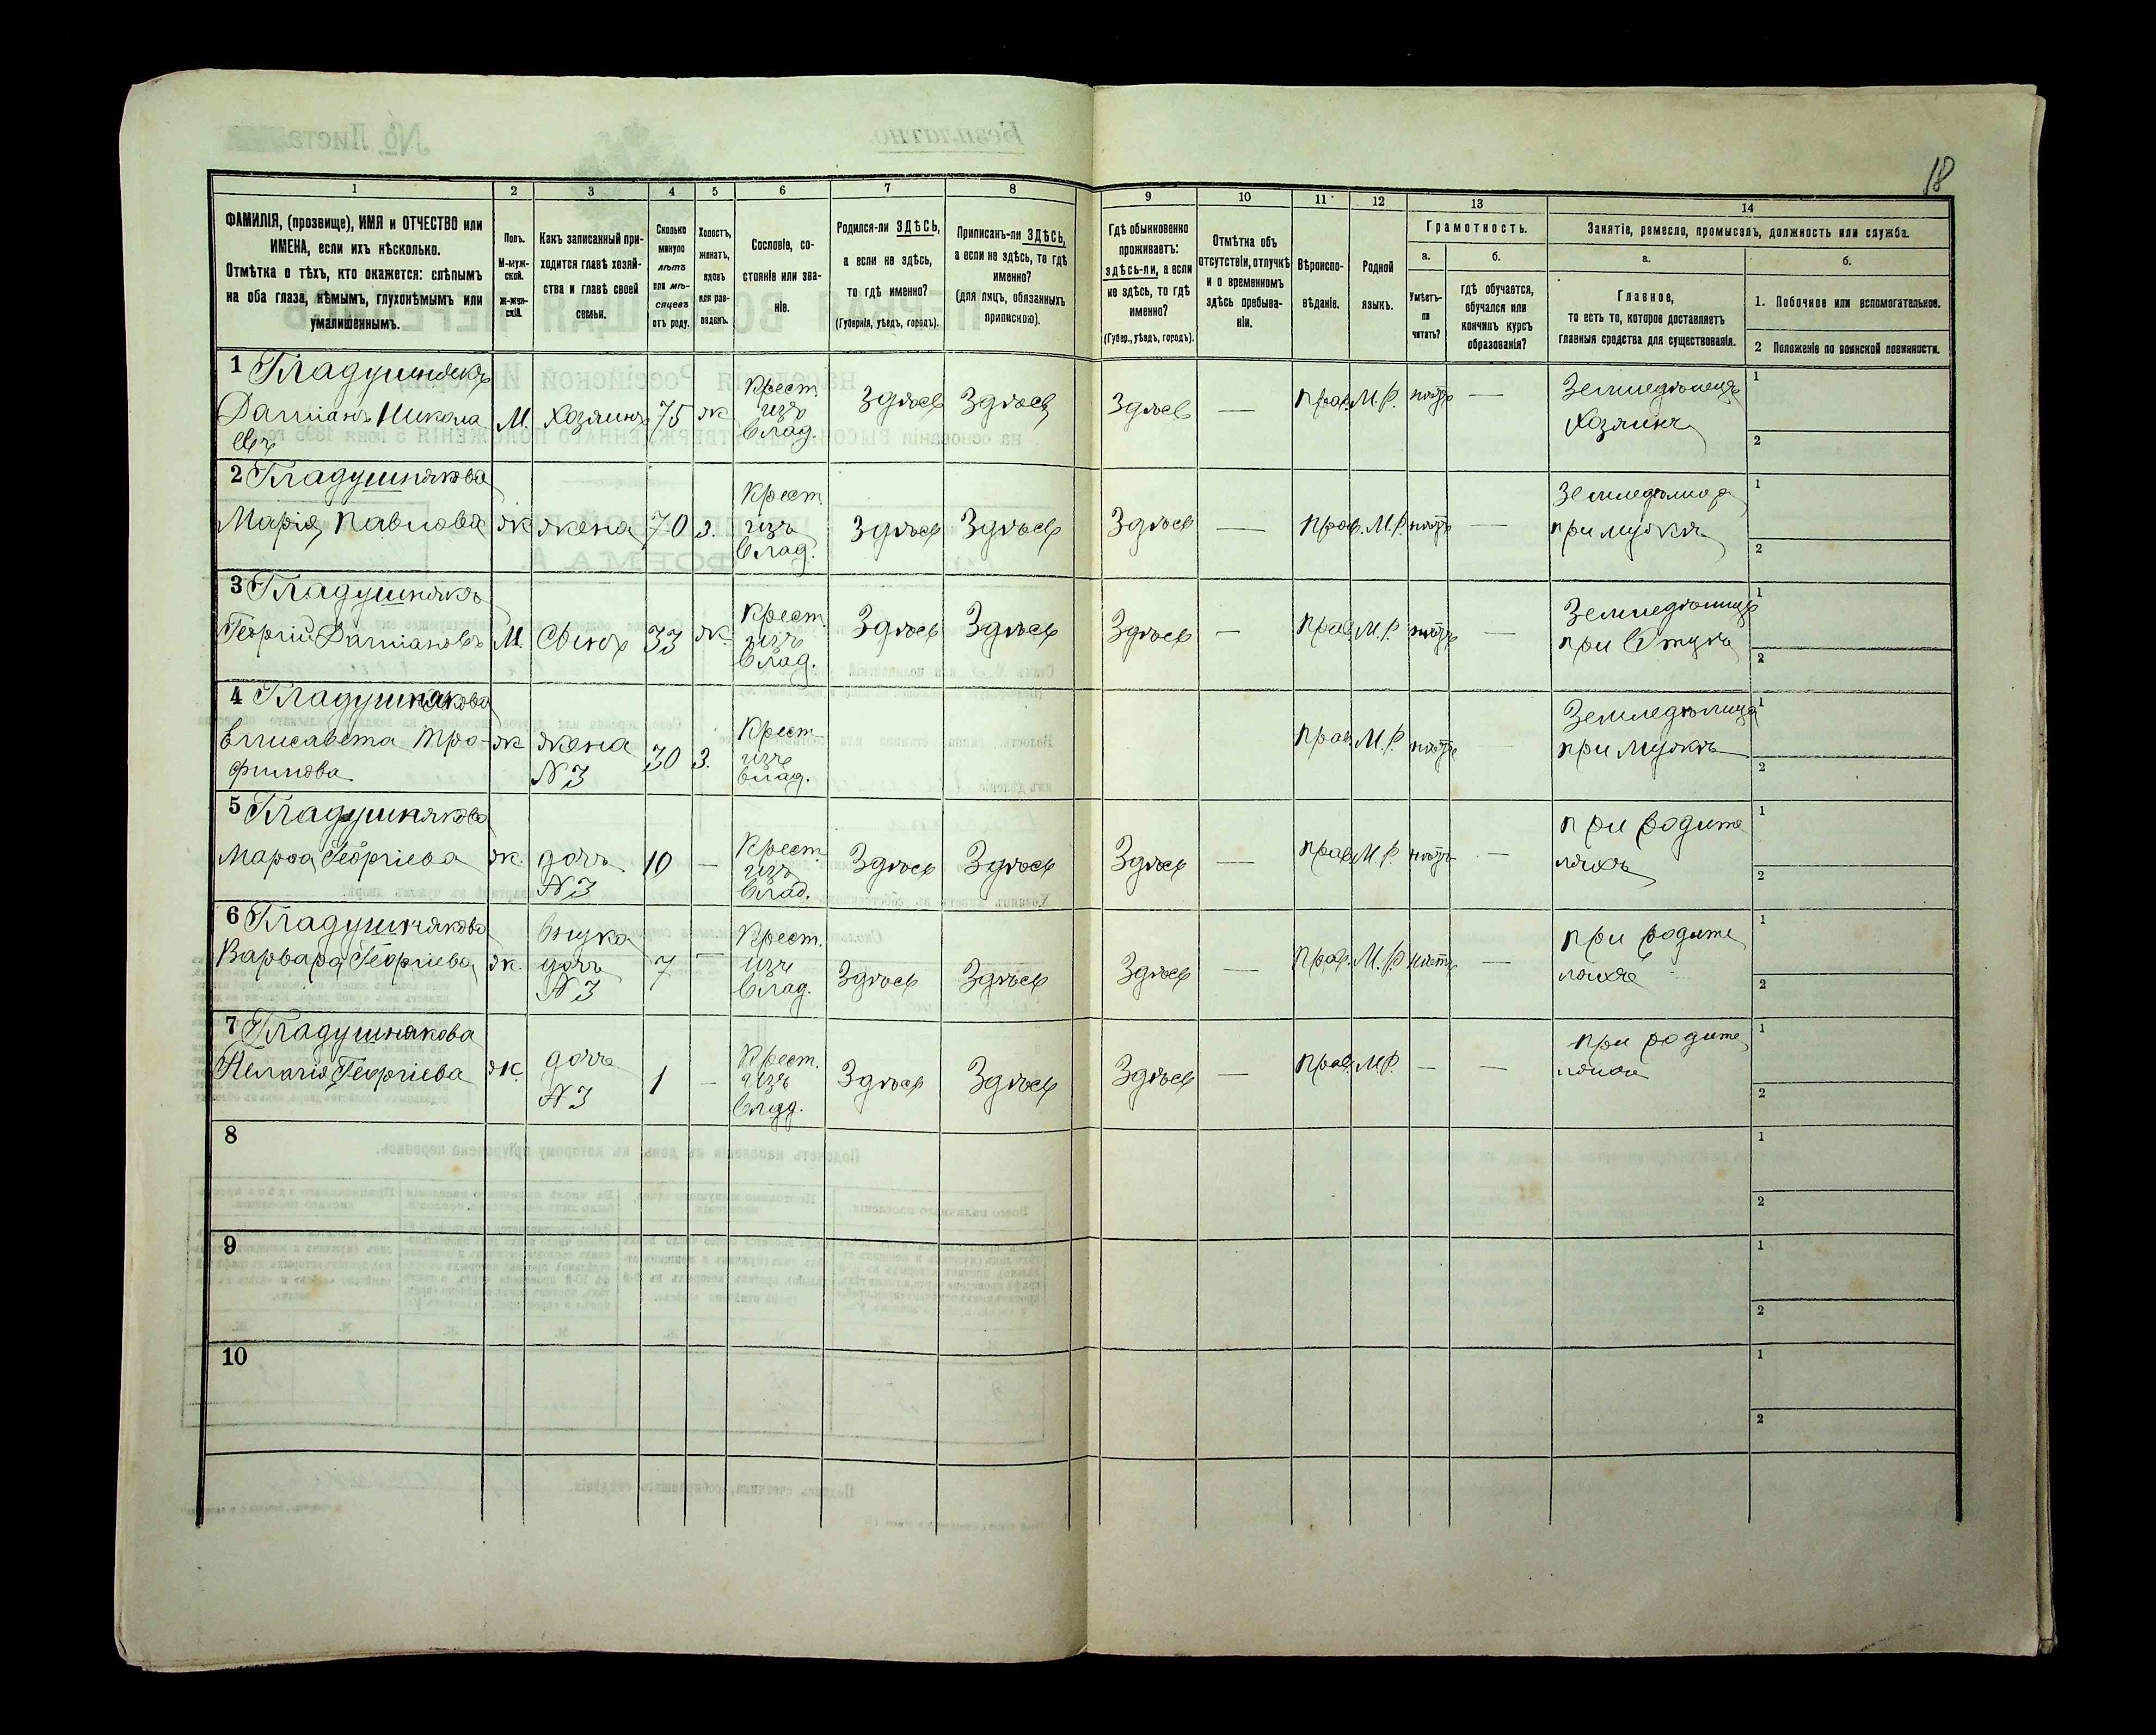 18
1
2
3
4
5
6
7
8
9
10
11
12
13
14
ФАМИЛІЯ, (прозвище), ИМЯ и ОТЧЕСТВО или
ИМЕНА, если ихъ нѣсколько.
Отмѣтка о тѣхъ, кто окажется: слѣпымъ
на оба глаза, нѣмымъ, глухонѣмымъ или
умалишеннымъ.
Полъ.
М-муж-
ской.
Ж-жен-
скій.
Какъ записанный при-
ходится главѣ хозяй-
ства и главѣ своей
семьи.
Сколько
минуло
лѣтъ
или мѣ-
сяцевъ
отъ роду.
Холостъ,
женатъ,
вдовъ
или раз-
веденъ.
Сословіе, со-
стояніе или зва-
ніе.
Родился-ли ЗДѢСЬ,
а если не здѣсь,
то гдѣ именно?
(Губернія, уѣздъ, городъ).
Приписанъ-ли ЗДѢСЬ,
а если не здѣсь, то гдѣ
именно?
(для лицъ, обязанныхъ
припискою).
Гдѣ обыкновенно
проживаетъ:
здѣсь-ли, а если
не здѣсь, то гдѣ
именно?
(Губер., уѣздъ, городъ).
Отмѣтка объ
отсутствіи, отлучкѣ
и о временномъ
здѣсь пребыва-
ніи.
Вѣроиспо-
вѣданіе.
Родной
языкъ.
Грамотность.
а.
Умѣетъ-
ли
читать?
б.
гдѣ обучается,
обучался или
кончилъ курсъ
образованія?
Занятіе, ремесло, промыселъ, должность или служба.
а.
Главное,
то есть то, которое доставляетъ
главныя средства для существованія.
б.
1. Побочное или вспомогательное.
2 Положеніе по воинской повинности.
1 Гладушнякъ
Даміанъ Никола
евъ
М. Хозяинъ 75 ж Крест. изъ влад. Здѣсь Здѣсь Здѣсь — прав. М.Р. нѣтъ — Земледѣлецъ Хозяинъ 1 2
2 Гладушнякова
Марія Павлова ж жена 70 з. Крест. изъ влад. Здѣсь Здѣсь Здѣсь — прав. М.Р. нѣтъ — при мужѣ 1 2
3 Гладушнякъ
Георгій Даміановъ М. Сынъ 33 ж. Крест. изъ влад. Здѣсь Здѣсь Здѣсь — прав. М.Р. нѣтъ — Земледѣлецъ при Отцѣ 1 2
4 Гладушнякова
Елисавета Тро-
фимова
ж жена №3 30 з. Крест. изъ влад. прав. М.Р. нѣтъ Земледѣлица при мужѣ 1 2
5 Гладушнякова
Марѳа Георгіева ж. дочь №3 10 — Крест. изъ влад. Здѣсь Здѣсь Здѣсь — прав. М.Р. нѣтъ — при родите
ляхъ 1 2
6 Гладушнякова
Варвара Георгіева ж. внука дочь №3 7 — Крест. изъ влад. Здѣсь Здѣсь Здѣсь — прав. М.Р. нѣтъ — при родите
ляхъ 1 2
7 Гладушнякова
Пелагія Георгіева ж. дочь №3 1 — Крест. изъ влад. Здѣсь Здѣсь Здѣсь — прав. М.Р. — — при родите 1 2
8 1 2
9 1 2
10 1 2